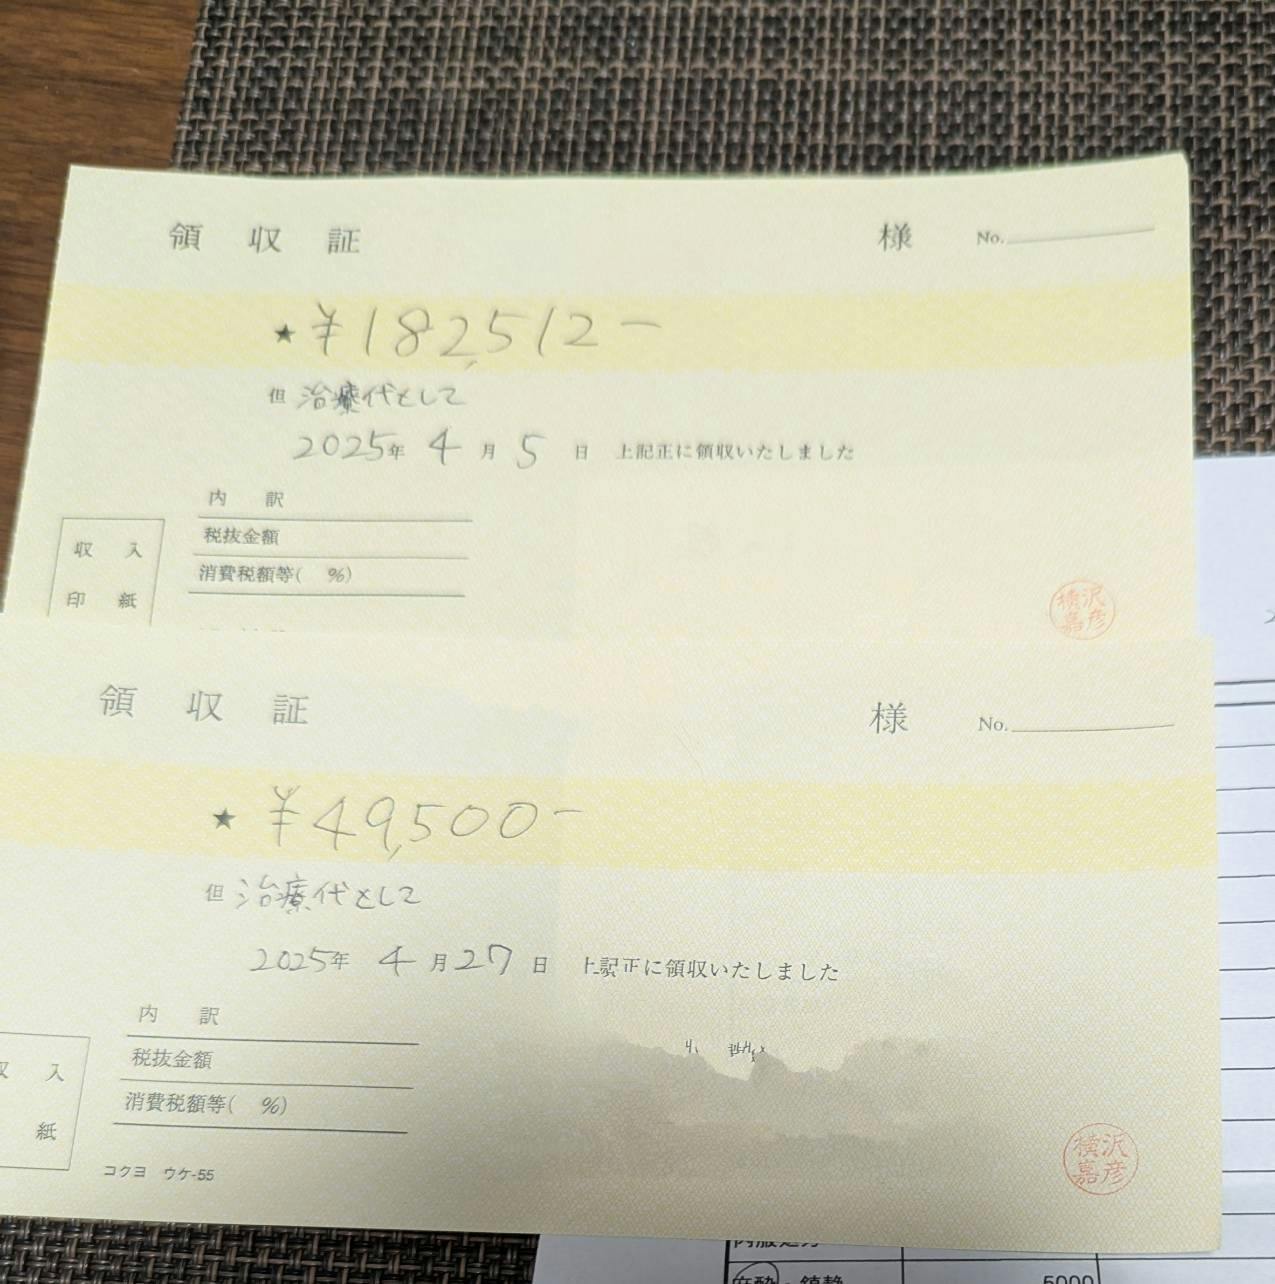 領 収 証 様 No.
★ ¥182,512-
但 治療代として
2025年 4月 5日 上記正に領収いたしました
内 訳
税抜金額
消費税額等( %)
収 入
印 紙
横沢
嘉彦
領 収 証 様 No.
★ ¥49,500-
但 治療代として
2025年 4月27日 上記正に領収いたしました
内 訳
税抜金額
消費税額等( %)
入
紙
コクヨ ウケ-55
横沢
嘉彦
麻酔・鎮静 5000